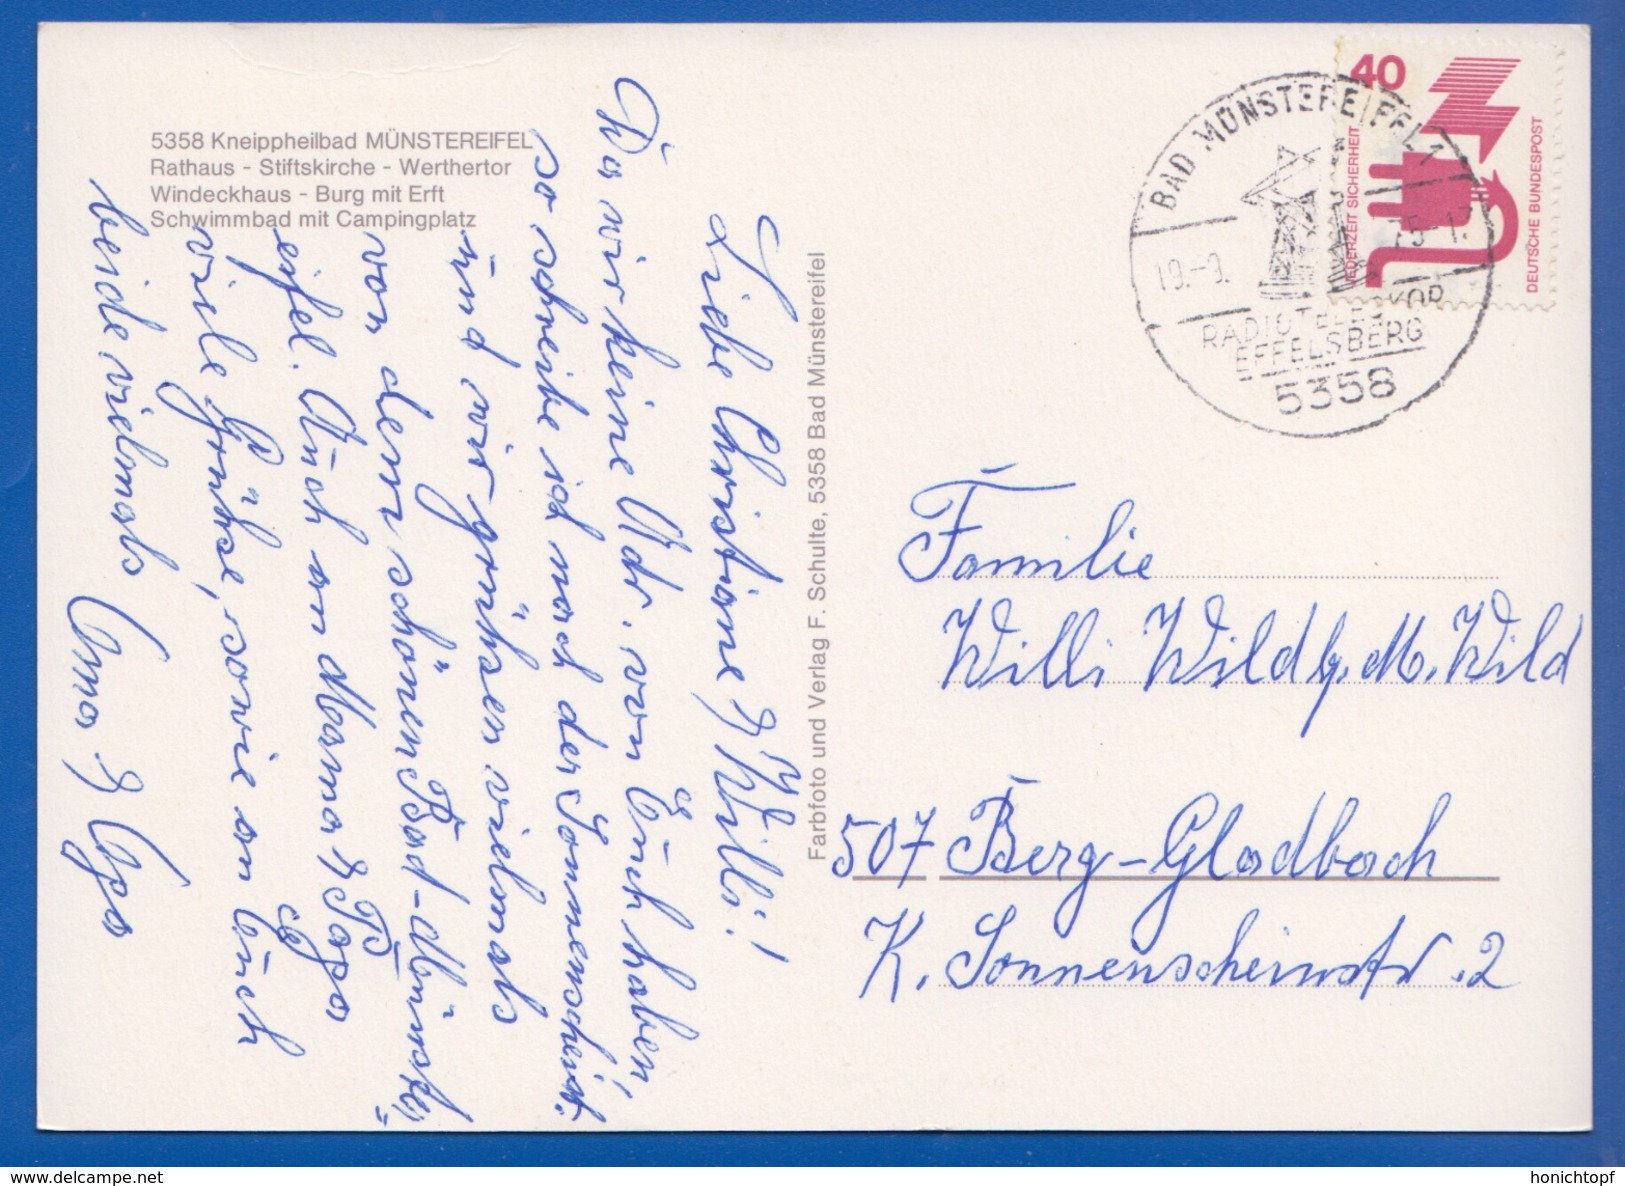 5358 Kneippheilbad MÜNSTEREIFEL
Rathaus - Stiftskirche - Werthertor
Windeckhaus - Burg mit Erft
Schwimmbad mit Campingplatz
Liebe Christiane & Willi!
Da wir keine Adr. von Euch haben,
so schreibe ich nach der Sonnenscheinst.
und wir grüßen vielmals
von dem schönen Bad-Münster-
eifel. Auch an Mama & Papa
viele Grüße, sowie an Euch
beide vielmals
Oma & Opa
Farbfoto und Verlag F. Schulte, 5358 Bad Münstereifel
40
JEDERZEIT SICHERHEIT
DEUTSCHE BUNDESPOST
BAD MÜNSTEREIFEL 1
19.-9. 75-17
RADIOTELESKOP
EFFELSBERG
5358
Familie
Willi Wild M. Wild
507 Berg-Gladbach
K. Sonnenscheinstr. 2
honichtopf